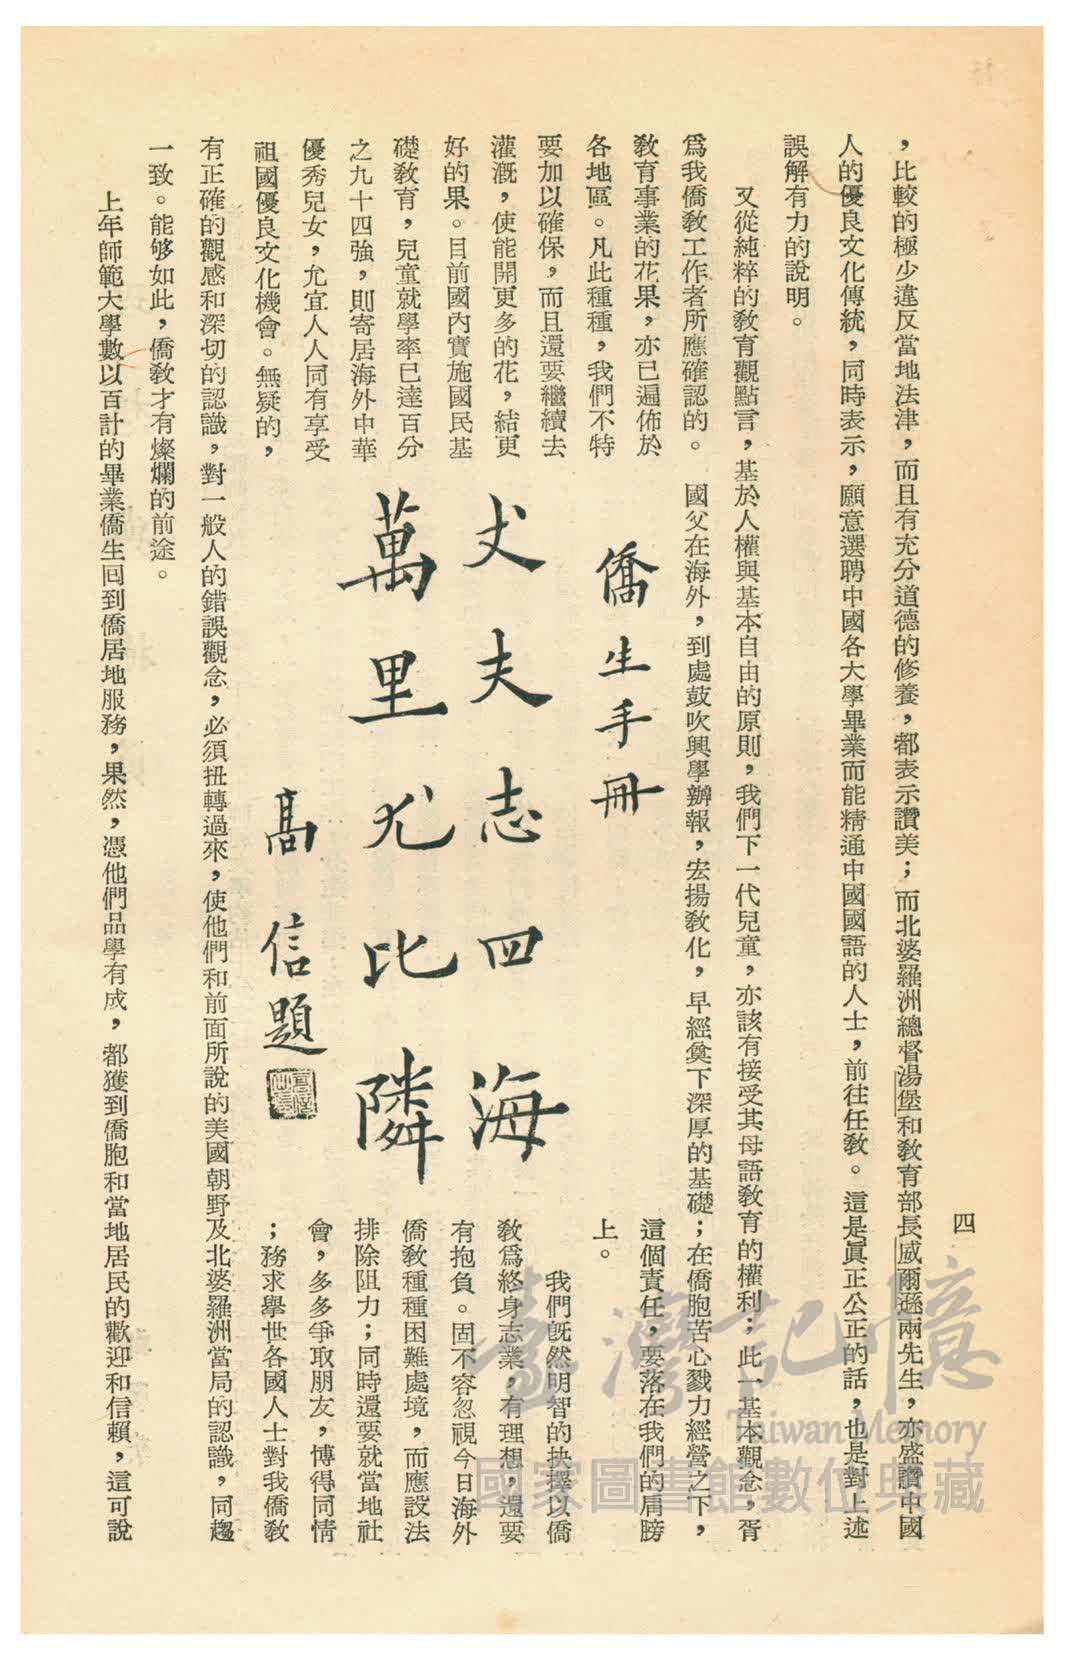 四
，比較的極少違反當地法津，而且有充分道德的修養，都表示讚美；而北婆羅洲總督湯堡和敎育部長威爾遜兩先生，亦盛讚中國
人的優良文化傳統，同時表示，願意選聘中國各大學畢業而能精通中國國語的人士，前往任敎。這是眞正公正的話，也是對上述
誤解有力的說明。
又從純粹的敎育觀點言，基於人權與基本自由的原則，我們下一代兒童，亦該有接受其母語敎育的權利；此一基本觀念，胥
爲我僑敎工作者所應確認的。　國父在海外，到處鼓吹興學辦報，宏揚敎化，早經奠下深厚的基礎；在僑胞苦心戮力經營之下，
敎育事業的花果，亦已遍佈於
各地區。凡此種種，我們不特
要加以確保，而且還要繼續去
灌漑，使能開更多的花，結更
好的果。目前國內實施國民基
礎敎育，兒童就學率已達百分
之九十四強，則寄居海外中華
優秀兒女，允宜人人同有享受
祖國優良文化機會。無疑的，
僑生手冊
丈夫志四海
萬里尤比隣
高信題
這個責任，要落在我們的肩膀
上。
我們旣然明智的抉擇以僑
敎爲終身志業，有理想，還要
有抱負。固不容忽視今日海外
僑敎種種困難處境，而應設法
排除阻力；同時還要就當地社
會，多多爭取朋友，博得同情
；務求舉世各國人士對我僑敎
有正確的觀感和深切的認識，對一般人的錯誤觀念，必須扭轉過來，使他們和前面所說的美國朝野及北婆羅洲當局的認識，同趨
一致。能够如此，僑敎才有燦爛的前途。
上年師範大學數以百計的畢業僑生囘到僑居地服務，果然，憑他們品學有成，都獲到僑胞和當地居民的歡迎和信賴，這可說
臺灣記憶
Taiwan Memory
國家圖書館數位典藏